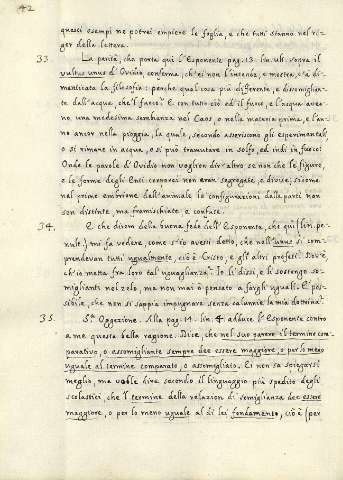 42
questi esempi ne potrei empiere le foglia, e che tutti stanno nel ri=
gor della lettera.
33. La parità, che porta qui l'Esponente pag. 13. lin. ult. sopra il
vultus unus d'Ovidio, conferma, ch'ei non l'intende, e mostra, c'ha di=
menticata la filosofia: perche qual cosa più differente, e dissomiglian=
te dall'acqua, che 'l fuoco? E con tutto ciò ed il fuoco, e l'acqua avea=
no una medesima sembianza nel Caos, o nella materia prima, e l'an=
no ancor nella pioggia, la quale, secondo asseriscono gli esperimentali
o si rimane in acqua, o si può tramutare in solfo, ed indi in fuoco:
Onde le parole d'Ovidio non voglion dir'altro se non che le figure,
e le forme degli Enti corporei non eran segregate, e divise; siccome
nel primo embrione dell'animale le configurazioni delle parti non
son distinte, ma framischiate, e confuse.
34. E che direm della buona fede dell'Esponente, che qui (lin. pe=
nult.) mi fa vedere, come s'io avessi detto, che nell'unus si com=
prendevan tutti ugualmente, cioè Cristo, e gli altri profeti? Dov'è,
ch'io metta fra loro tal uguaglianza? Io li dissi, e li sostengo so=
miglianti nel zelo, ma non mai ò pensato a fargli uguali. E' pos=
sibile, che non si sappia impugnare senza calunnie la mia dottrina?
35. 5.ta Oggezione. Alla pag. 14. lin. 4. adduce l'Esponente contro
a me questa bella ragione. Dice, che nel suo parere il termine com=
parativo, o assomigliante sempre dee essere maggiore, o per lo meno
uguale al termine comparato, o assomigliato. Ei non sa spiegarsi
meglio, ma volle dire secondo il linguaggio più spedito degli
scolastici, che 'l termine della relazion di somiglianza dee essere
maggiore, o per lo meno uguale al di lei fondamento, cioè (per